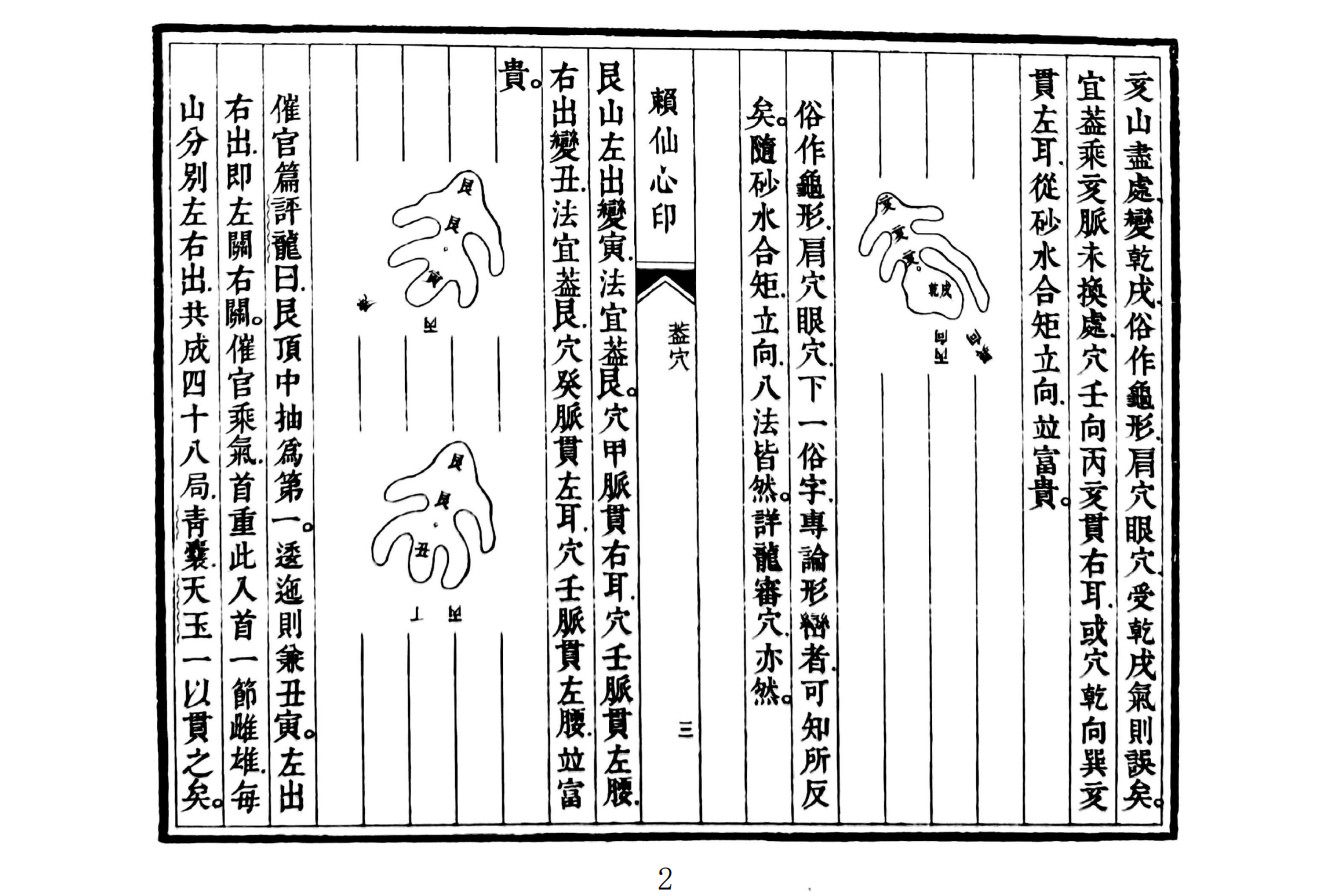 亥山盡處、變乾戌、俗作龜形、肩穴眼穴、受乾戌氣則誤矣。
宜葢乘亥脈未換處、穴壬向丙亥貫右耳、或穴乾向巽亥
貫左耳、從砂水合矩立向、竝富貴。
亥
亥
亥
乾戌
丙向
巽向
俗作龜形、肩穴眼穴、下一俗字、專論形巒者、可知所反
矣。隨砂水合矩、立向、八法皆然。詳龍審穴、亦然。
賴仙心印
葢穴
三
艮山左出變寅、法宜葢艮。穴甲脈貫右耳、穴壬脈貫左腰、
右出變丑、法宜葢艮、穴癸脈貫左耳、穴壬脈貫左腰、竝富
貴。
艮
艮
寅
丙
艮
艮
丑
丙
丁
催官篇評龍曰、艮頂中抽爲第一。逶迤則兼丑寅。左出
右出、即左關右關。催官乘氣、首重此入首一節雌雄、每
山分別左右出、共成四十八局、青囊、天玉一以貫之矣。
2